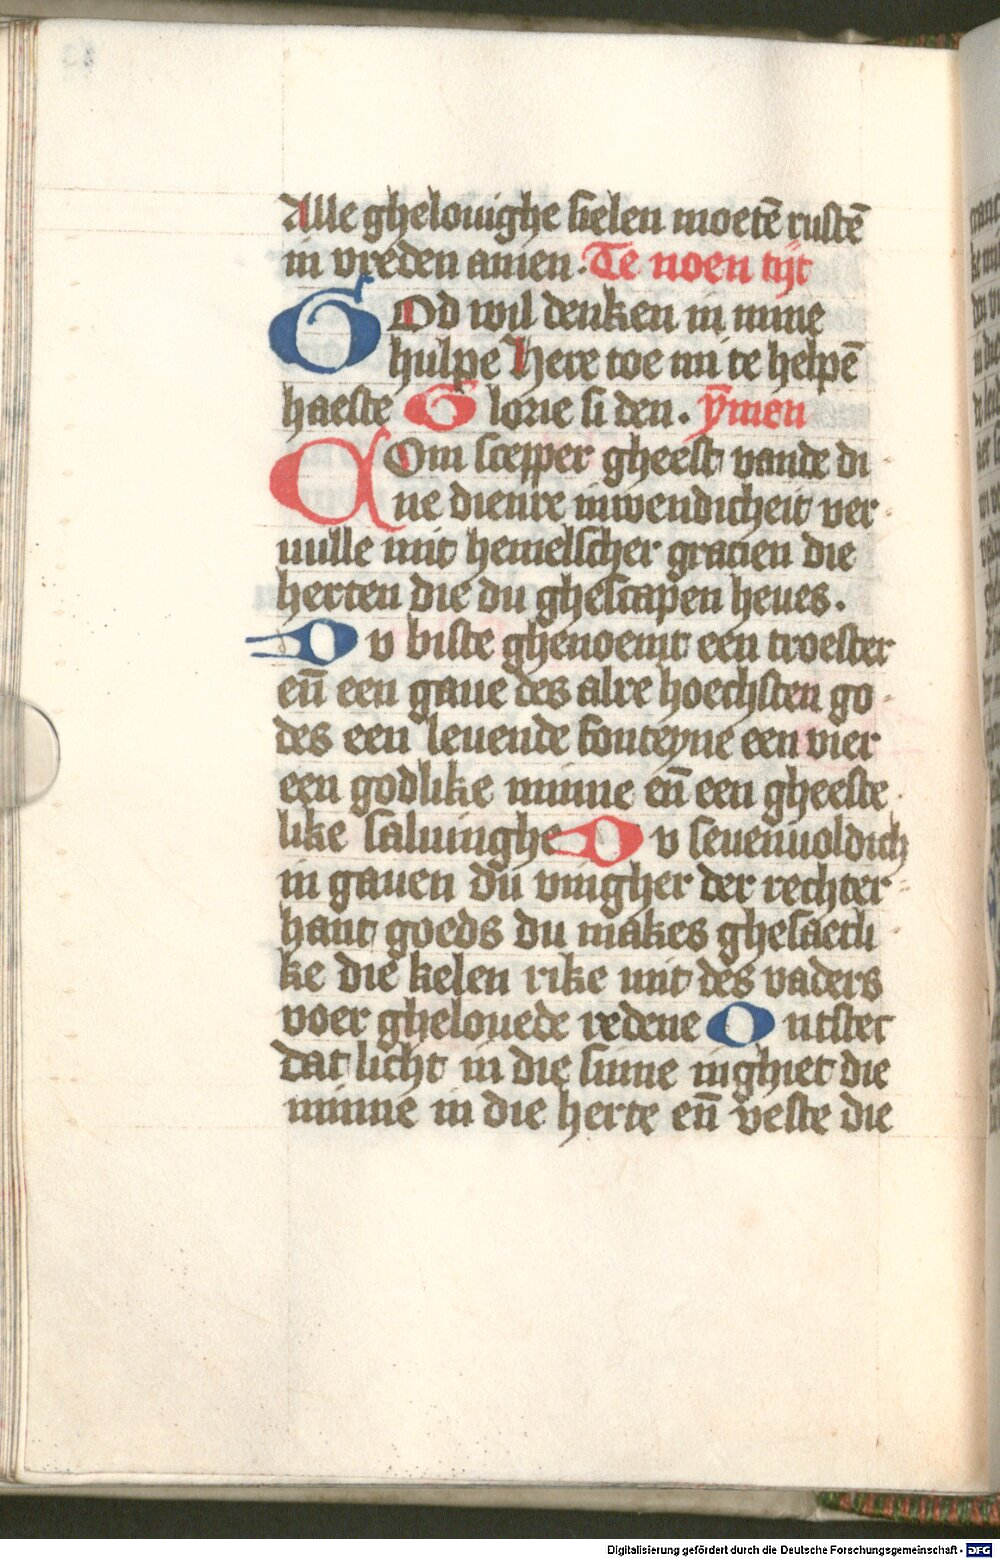 Alle ghelouighe sielen moetē rustē
in vreden amen. Te noen tijt
GOd wil denken in mine
hulpe Here toe mi te helpē
haeste Glorie si den. ȳmen
COm scepper gheest vande di
ne dienre inwendicheit ver
uulle mit hemelscher gracien die
herten die du ghescapen heues.
Du biste ghenoemt een troester
en̄ een gaue des alre hoechsten go
des een leuende fonteyne een vier
een godlike minne en̄ een gheeste
like saluinghe Du seuenuoldich
in gauen du vingher der rechter
hant goeds du makes ghesaetli
ke die kelen rike mit des vaders
voer ghelouede redene Ontstet
dat licht in die sinne inghiet die
minne in die herte en̄ veste die
Digitalisierung gefördert durch die Deutsche Forschungsgemeinschaft - DFG